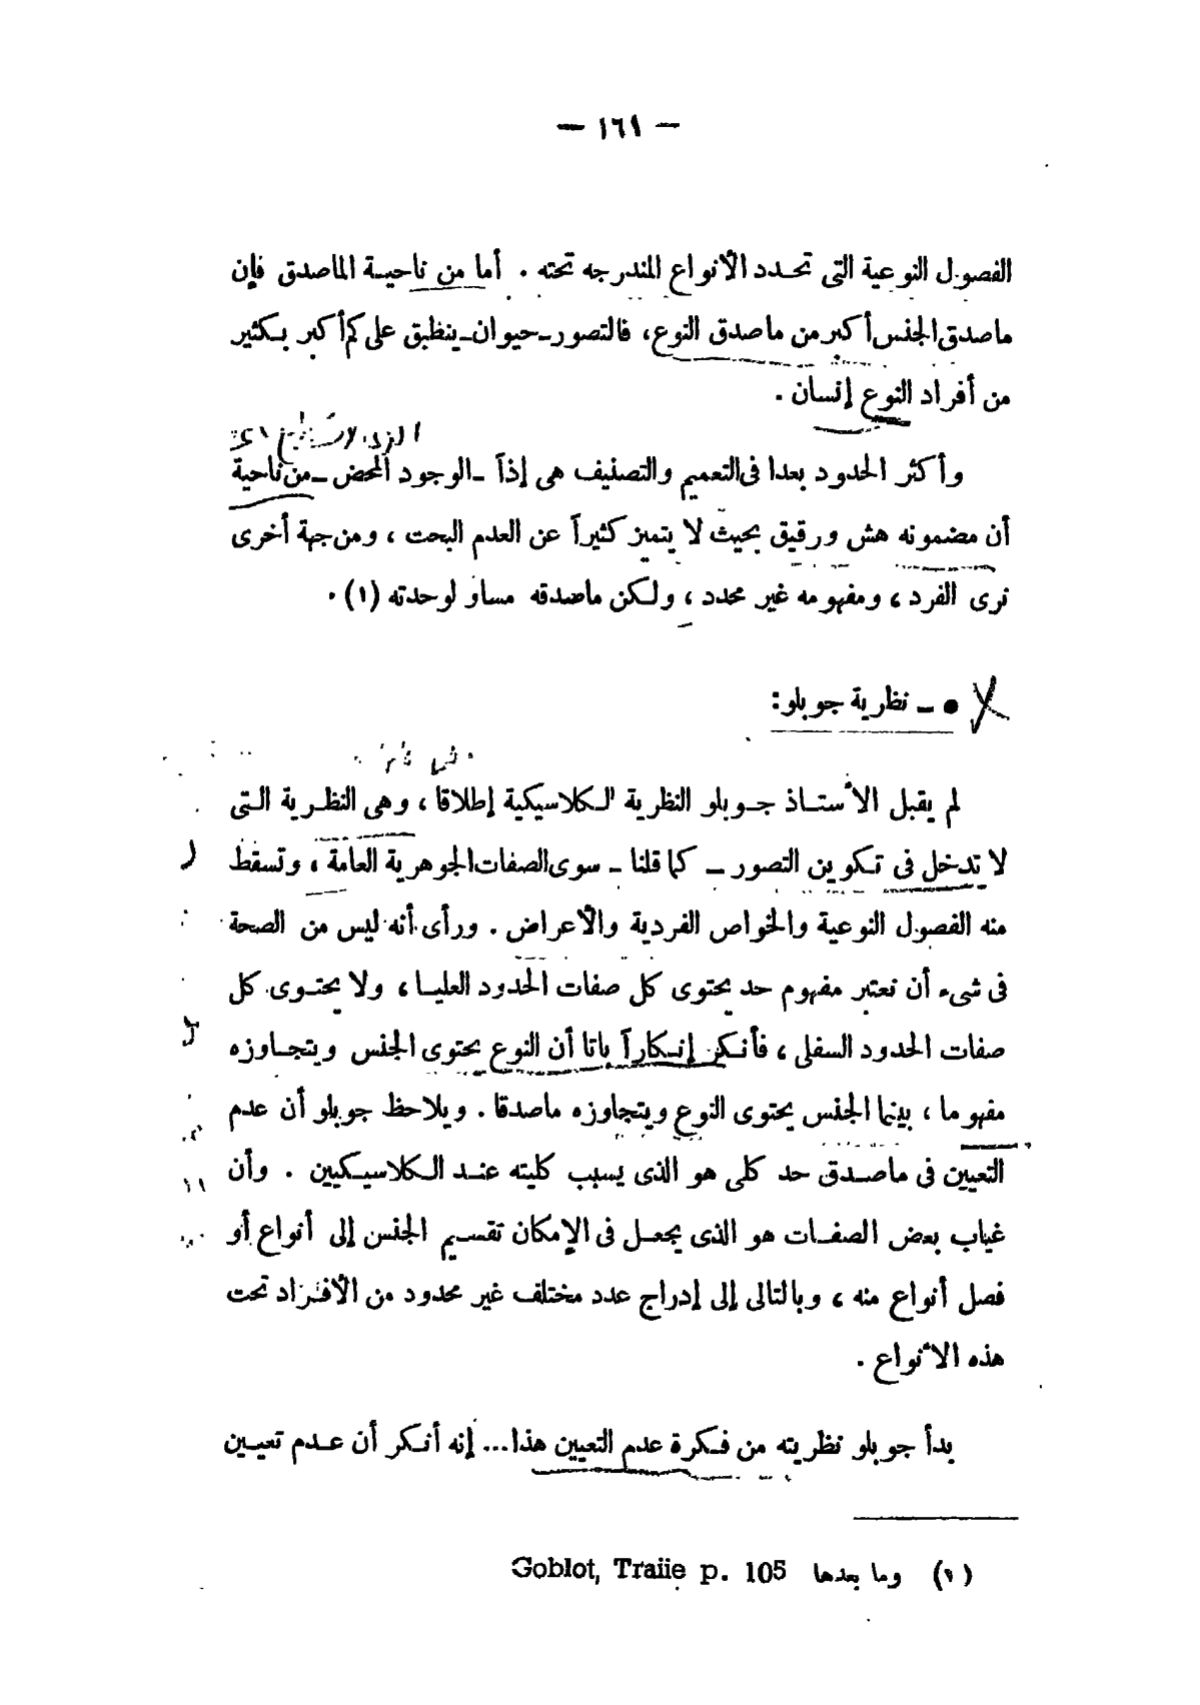 — ١٦١ —
الفصول النوعية التى تحدد الأنواع المندرجه تحته . أما من ناحية الماصدق فإن
ماصدق الجنس أكبر من ماصدق النوع، فالتصور - حيوان - ينطبق على كم أكبر بكثير
من أفراد النوع إنسان .
وأكثر الحدود بعدا فى التعميم والتصنيف هى إذاً - الوجود المحض - من ناحية
أن مضمونه هش ورقيق بحيث لا يتميز كثيراً عن العدم البحت ، ومن جهة أخرى
نرى الفرد ، ومفهومه غير محدد ، ولكن ماصدقه مساو لوحدته (١) .
● - نظرية جوبلو:
لم يقبل الأستاذ جوبلو النظرية الكلاسيكية إطلاقا ، وهى النظرية التى
لا تدخل فى تكوين التصور - كما قلنا - سوى الصفات الجوهرية العامة ، وتسقط
منه الفصول النوعية والخواص الفردية والأعراض . ورأى أنه ليس من الصحة
فى شىء أن نعتبر مفهوم حد يحتوى كل صفات الحدود العليا ، ولا يحتوى كل
صفات الحدود السفلى ، فأنكر إنكاراً باتا أن النوع يحتوى الجنس ويتجاوزه
مفهوما ، بينما الجنس يحتوى النوع ويتجاوزه ماصدقا . ويلاحظ جوبلو أن عدم
التعيين فى ماصدق حد كلى هو الذى يسبب كليته عند الكلاسيكيين . وأن
غياب بعض الصفات هو الذى يجعل فى الإمكان تقسيم الجنس إلى أنواع أو
فصل أنواع منه ، وبالتالى إلى إدراج عدد مختلف غير محدود من الأفراد تحت
هذه الأنواع .
بدأ جوبلو نظريته من فكرة عدم التعيين هذا... إنه أنكر أن عدم تعيين
(١) وما بعدها Goblot, Traiie p. 105